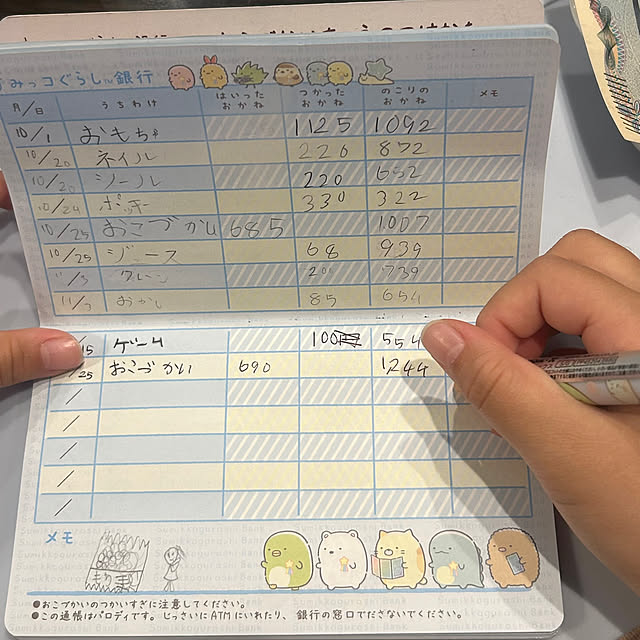 すみっコぐらし 銀行
月/日 うちわけ はいったおかね つかったおかね のこりのおかね メモ
10/1 おもちゃ 1125 1092
10/20 ネイル 220 872
10/20 シール 220 652
10/24 ポッキー 330 322
10/25 おこづかい 685 1007
10/25 ジュース 68 939
11/3 739
11/3 おかし 85 654
/15 ゲーム 100 554
/25 おこづかい 690 1244
/
/
/
/
/
メモ
●おこづかいのつかいすぎに注意してください。
●この通帳はパロディです。じっさいにATMにいれたり、銀行の窓口でださないでください。